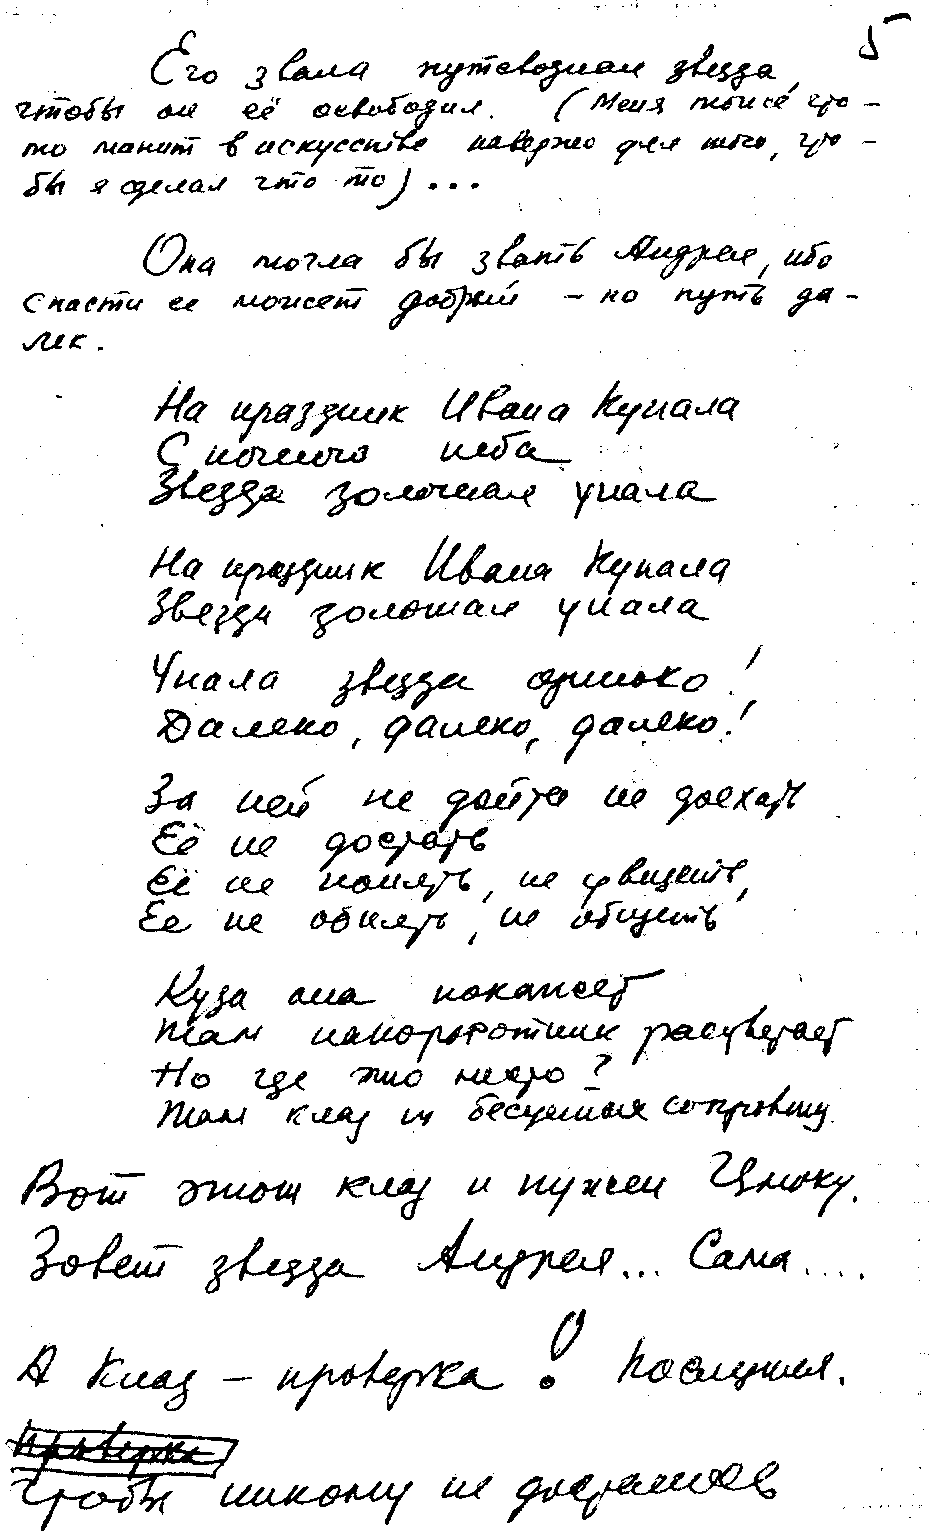 5
Его звала путеводная звезда,
чтобы он её освободил. (Меня тоже что-
то манит в искусстве наверно для того, что-
бы я сделал что то)...
Она могла бы звать Андрея, ибо
спасти ее может добрый - но путь да-
лек.
На праздник Ивана Купала
С ночного неба
Звезда золотая упала
На праздник Ивана Купала
Звезда золотая упала
Упала звезда одиноко!
Далеко, далеко, далеко!
За ней не дойти не доехать
Её не достать
Её не понять, не увидеть,
Ее не обнять, не обидеть
Куда она покажет
Там папоротник расцветает
Но где это место?
Там клад
Вот этот клад и нужен Цмоку.
Зовет звезда Андрея... Сама....
А Клад - проверка! Последняя.
Проверка
Чтобы никому не достался